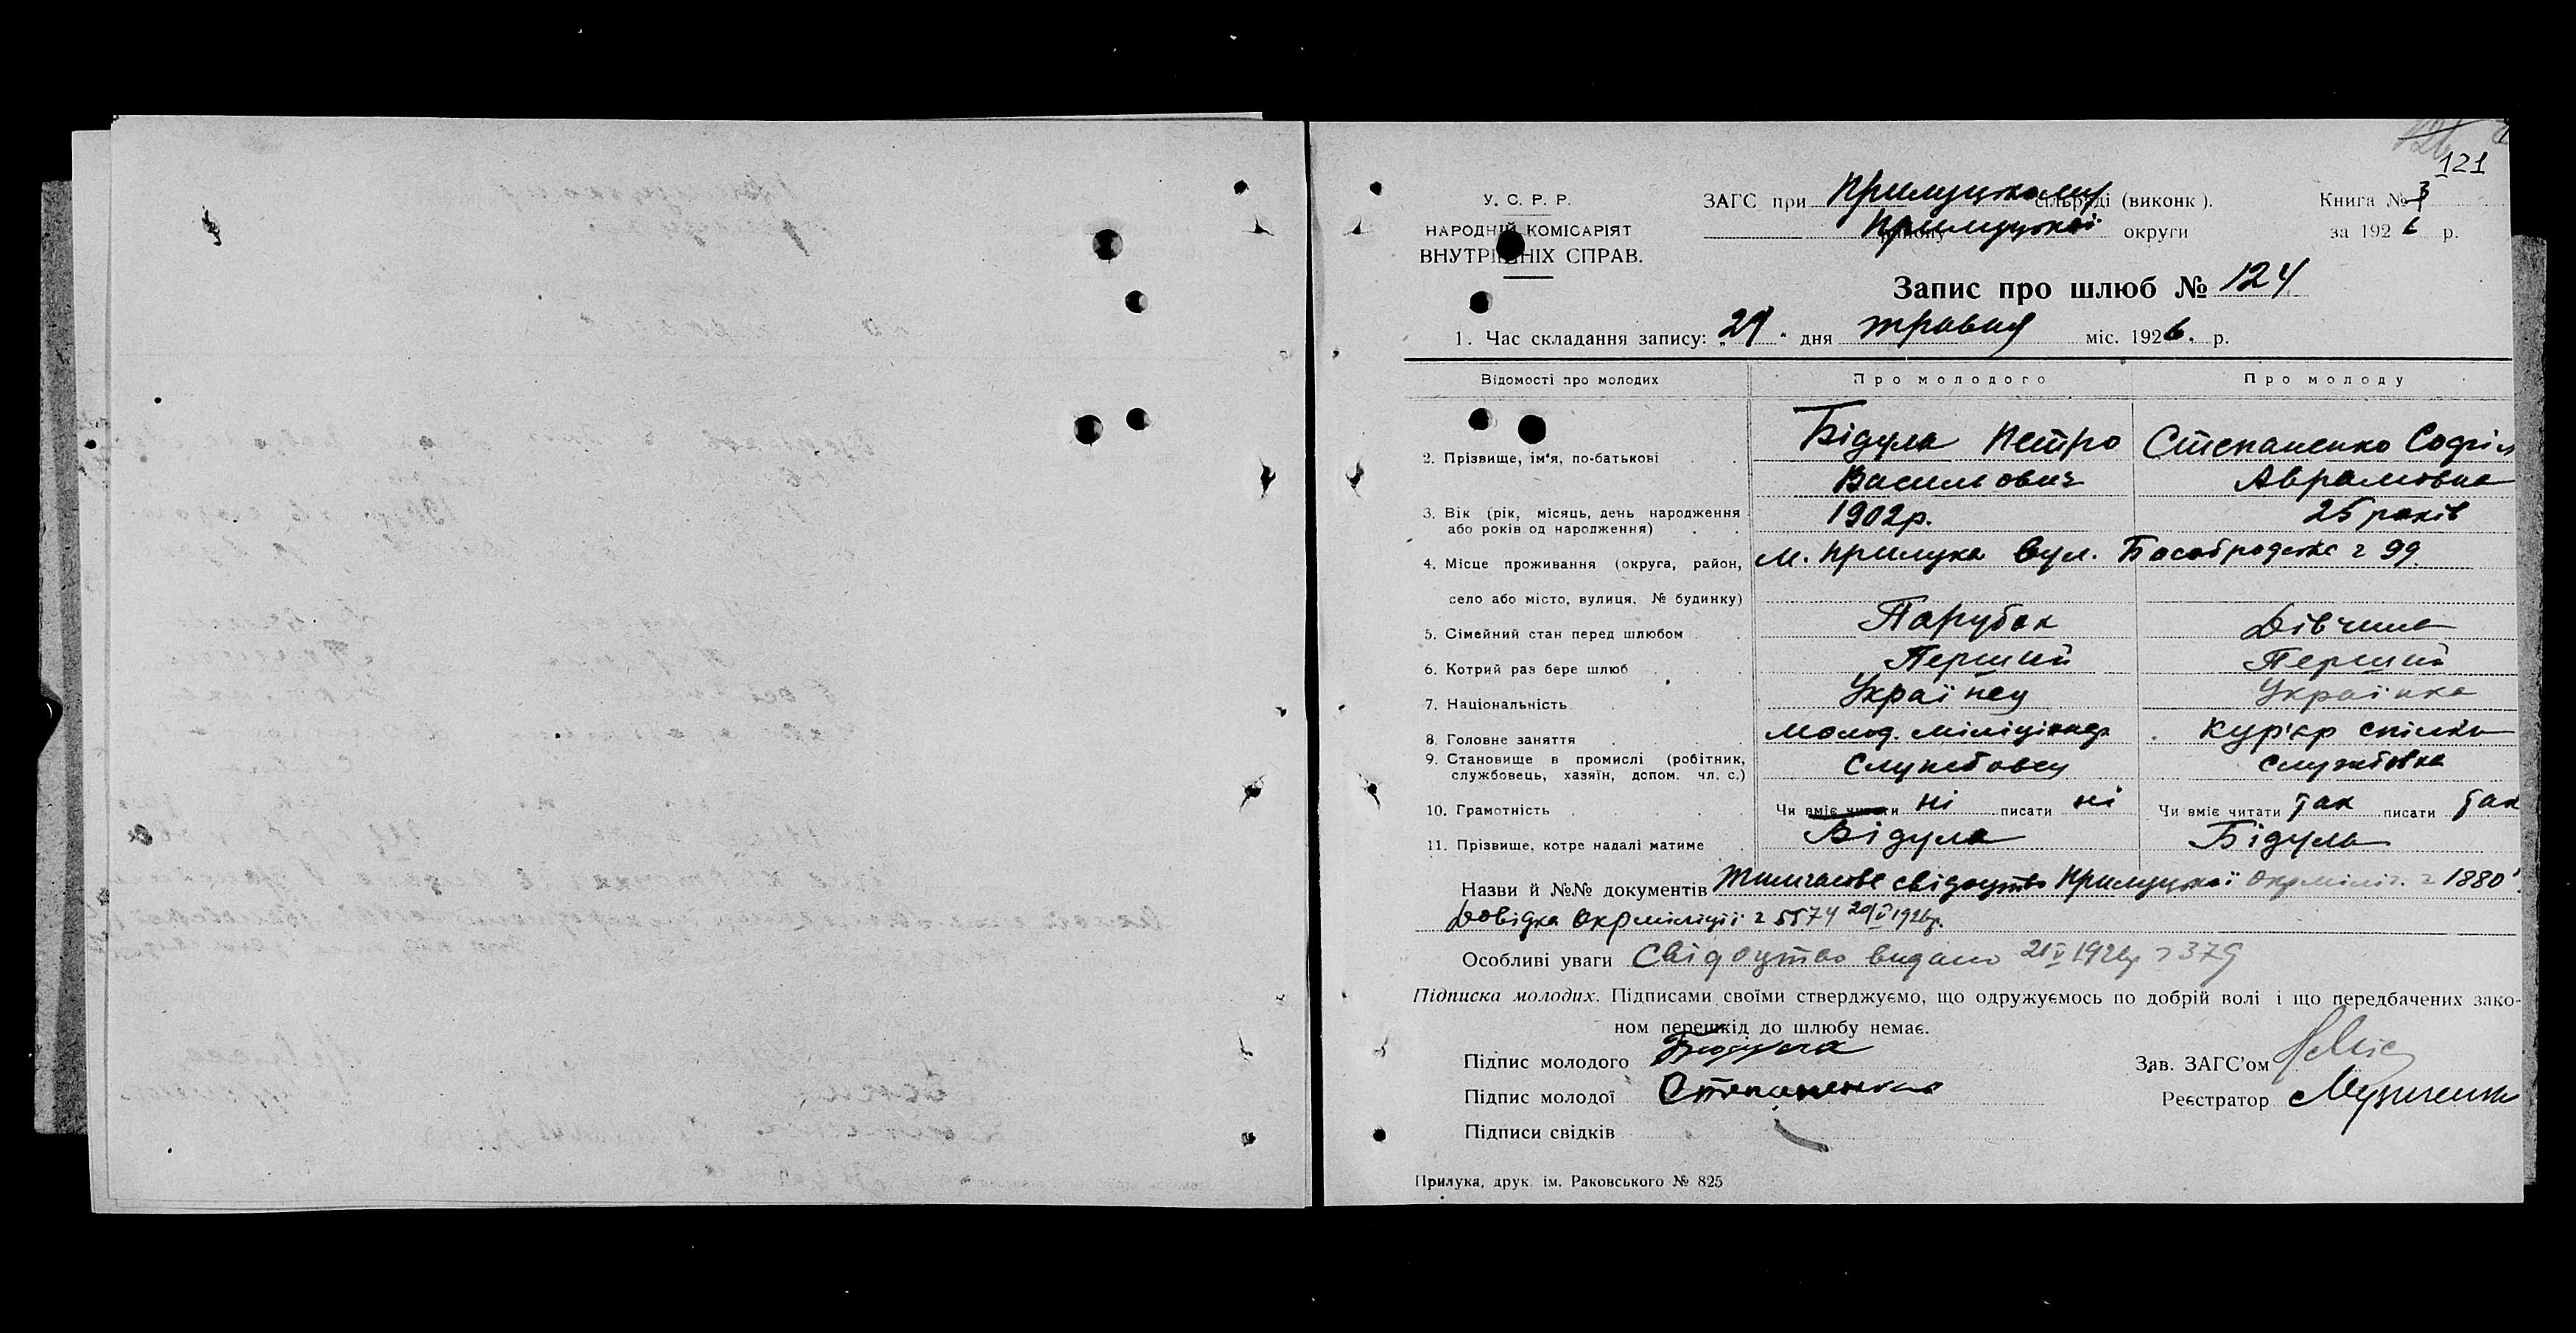 121
У. С. Р. Р.
НАРОДНІЙ КОМІСАРІЯТ
ВНУТРІШНІХ СПРАВ.
ЗАГС при Прилуцькому сільраді (виконк).
району Прилуцької округи
Книга № 3
за 1926 р.
Запис про шлюб № 124
1. Час складання запису: „21" дня травня міс. 1926. р.
Відомості про молодих Про молодого Про молоду
2. Прізвище, ім'я, по-батькові Бідула Петро Степаненко Софія
Васильович Аврамовна
3. Вік (рік, місяць, день народження 1902р. 25 років
або років од народження)
4. Місце проживання (округа, район, м. Прилука вул. 99.
село або місто, вулиця, № будинку)
5. Сімейний стан перед шлюбом Парубок Дівчина
6. Котрий раз бере шлюб Перший Перший
7. Національність Українец Українка
8. Головне заняття Молод. міліціонер Кур'єр спілки
9. Становище в промислі (робітник, Службовец Службовка
службовець, хазяїн, допом. чл. с.)
10. Грамотність Чи вміє читати ні писати ні Чи вміє читати так писати так
11. Прізвище, котре надалі матиме Бідула Бідула
Назви й №№ документів Тимчасове свідоцтво Прилуцької Окрміліц. 1880
Довідка Окрміліції 5574 20/V 1926р.
Особливі уваги Свідоцтво видано 21/V 1926р 379
Підписка молодих. Підписами своїми стверджуємо, що одружуємось по добрій волі і що передбачених зако-
ном перешкід до шлюбу немає.
Підпис молодого Бидула
Зав. ЗАГС'ом
Підпис молодої Степаненко
Реєстратор
Підписи свідків
Прилука, друк. ім. Раковського № 825